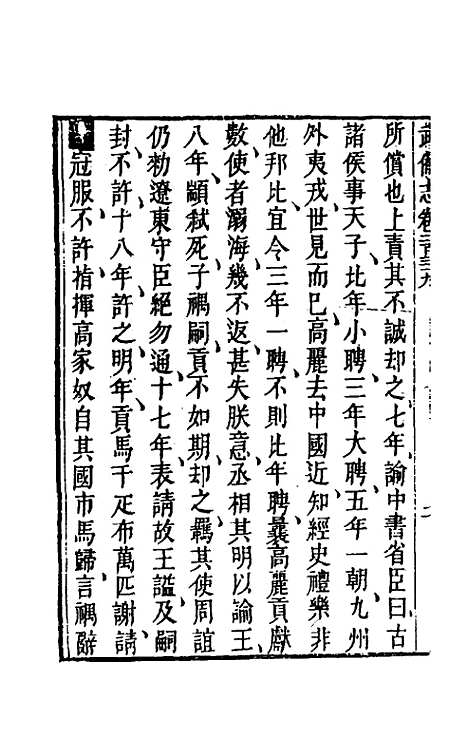 武備志卷二百三九
所償也上責其不誠却之七年諭中書省臣曰古
諸侯事天子比年小聘三年大聘五年一朝九州
外夷戎世見而已高麗去中國近知經史禮樂非
他邦比宜令三年一聘不則比年聘曩高麗貢獻
數使者溺海幾不返甚失朕意丞相其明以諭王
八年顓弒死子禑嗣貢不如期却之羈其使周誼
仍勑遼東守臣絕勿通十七年表請故王謚及嗣
封不許十八年許之明年貢馬千疋布萬匹謝請
冠服不許指揮高家奴自其國市馬歸言禑辭